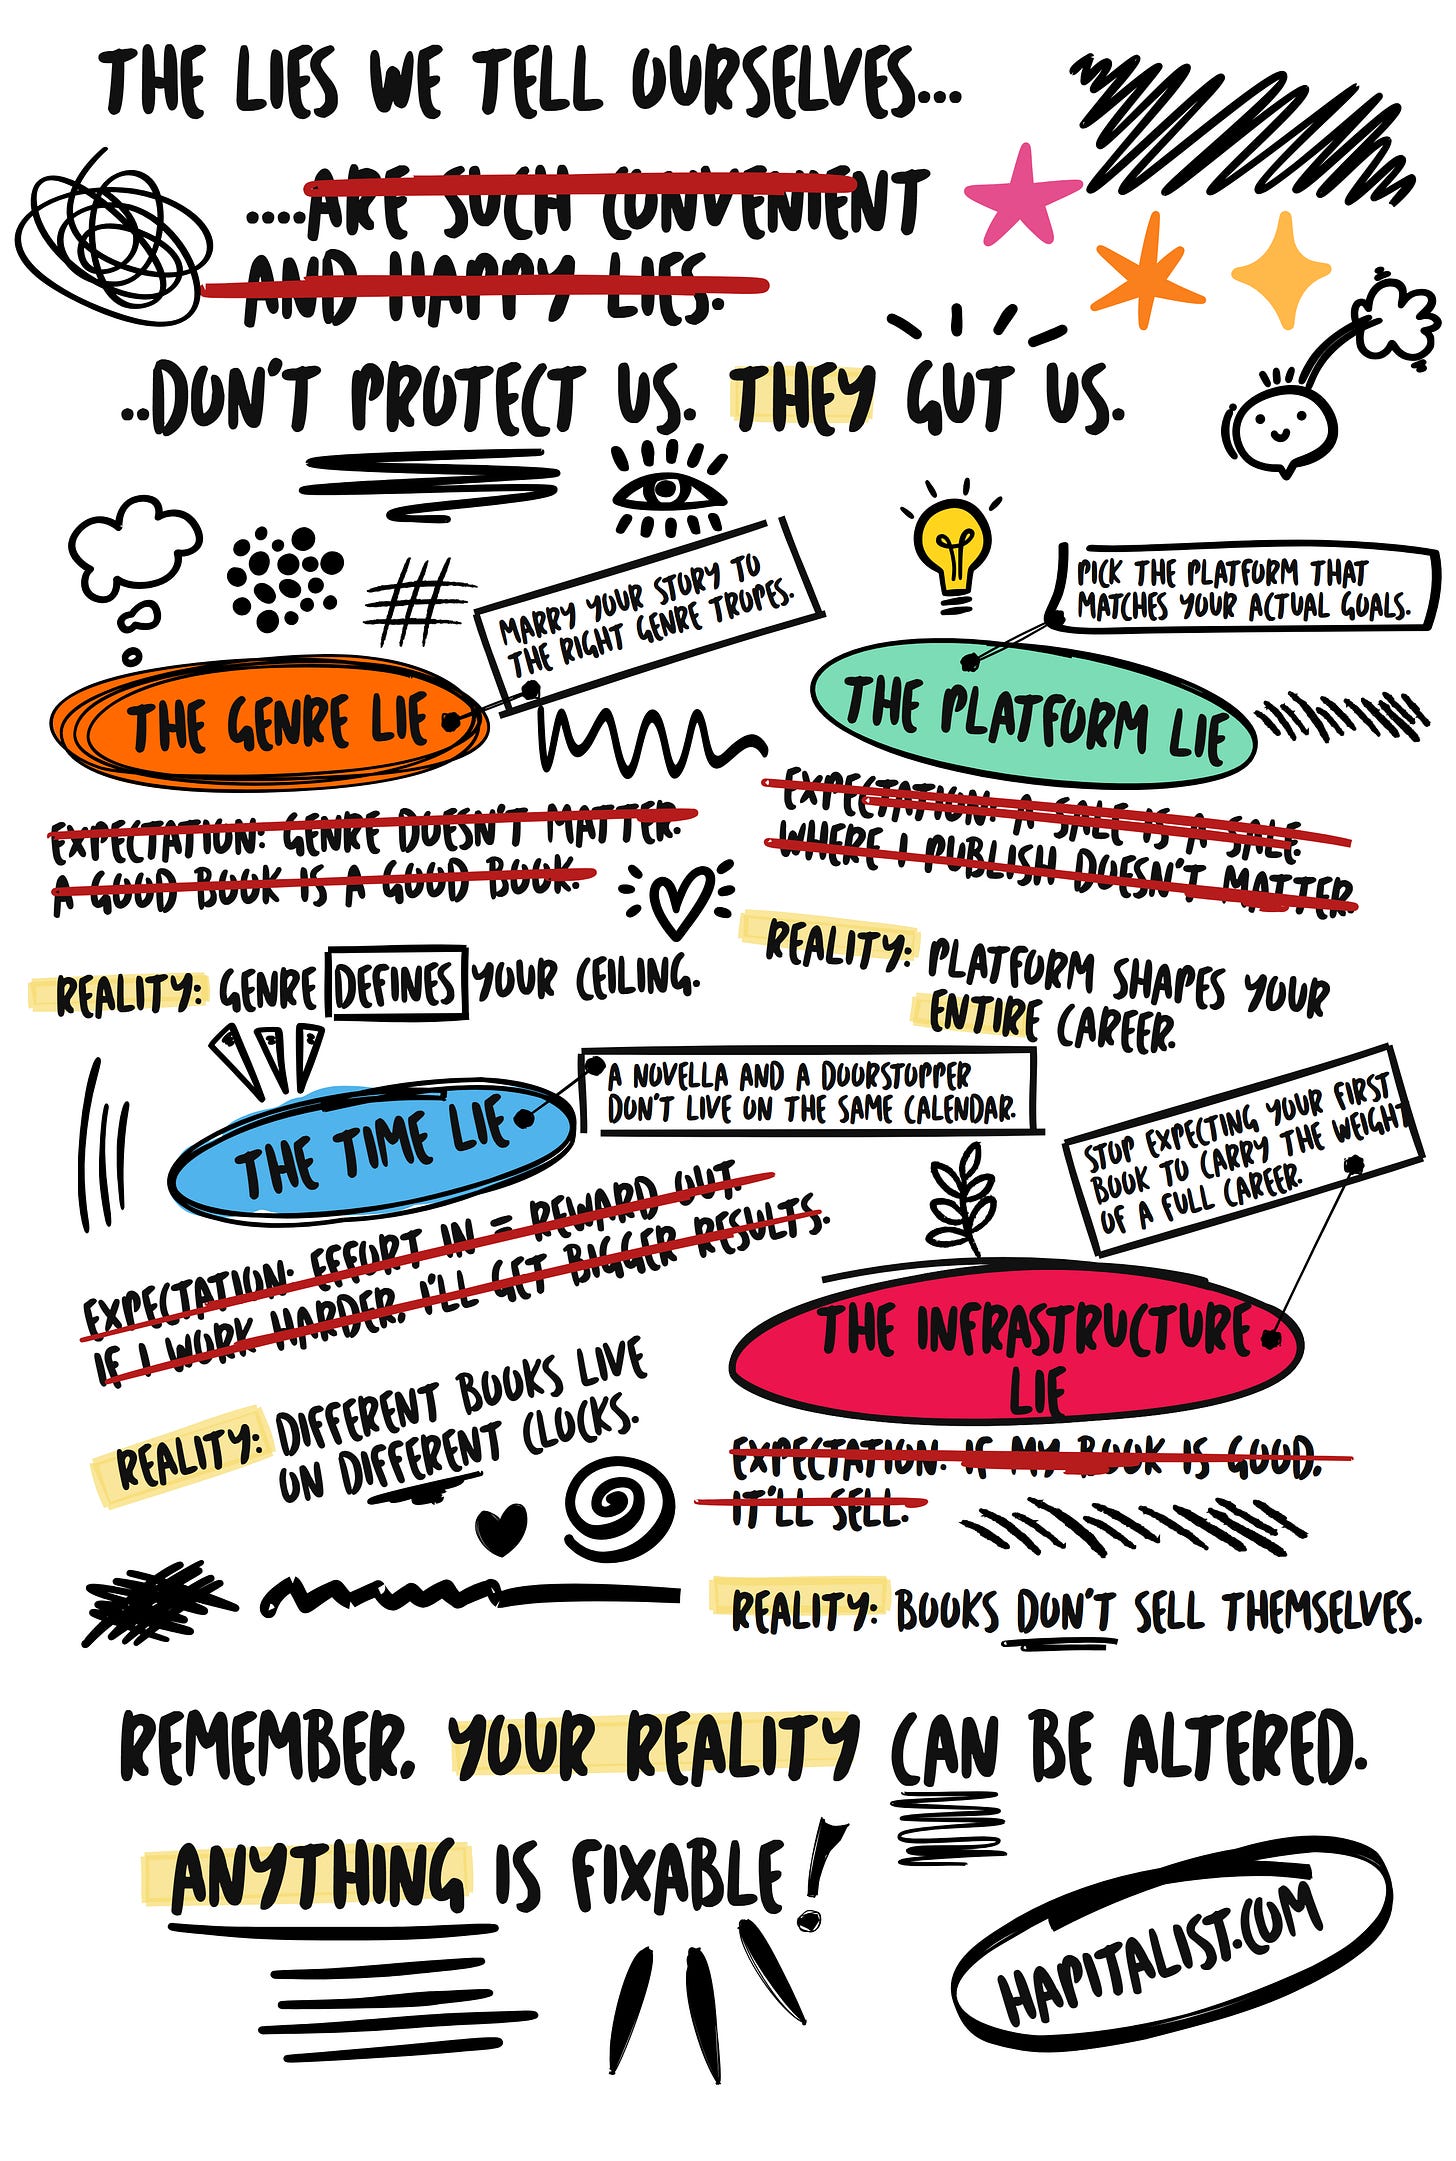 THE LIES WE TELL OURSELVES...
....ARE SUCH CONVENIENT
AND HAPPY LIES.
..DON'T PROTECT US. THEY GUT US.
MARRY YOUR STORY TO
THE RIGHT GENRE TROPES.
THE GENRE LIE
EXPECTATION: GENRE DOESN'T MATTER.
A GOOD BOOK IS A GOOD BOOK.
REALITY: GENRE DEFINES YOUR CEILING.
PICK THE PLATFORM THAT
MATCHES YOUR ACTUAL GOALS.
THE PLATFORM LIE
EXPECTATION: A SALE IS A SALE.
WHERE I PUBLISH DOESN'T MATTER
REALITY: PLATFORM SHAPES YOUR
ENTIRE CAREER.
A NOVELLA AND A DOORSTOPPER
DON'T LIVE ON THE SAME CALENDAR.
THE TIME LIE
EXPECTATION: EFFORT IN = REWARD OUT.
IF I WORK HARDER, I'LL GET BIGGER RESULTS.
REALITY: DIFFERENT BOOKS LIVE
ON DIFFERENT CLOCKS.
STOP EXPECTING YOUR FIRST
BOOK TO CARRY THE WEIGHT
OF A FULL CAREER.
THE INFRASTRUCTURE
LIE
EXPECTATION: IF MY BOOK IS GOOD,
IT'LL SELL.
REALITY: BOOKS DON'T SELL THEMSELVES.
REMEMBER, YOUR REALITY CAN BE ALTERED.
ANYTHING IS FIXABLE!
HAPITALIST.COM